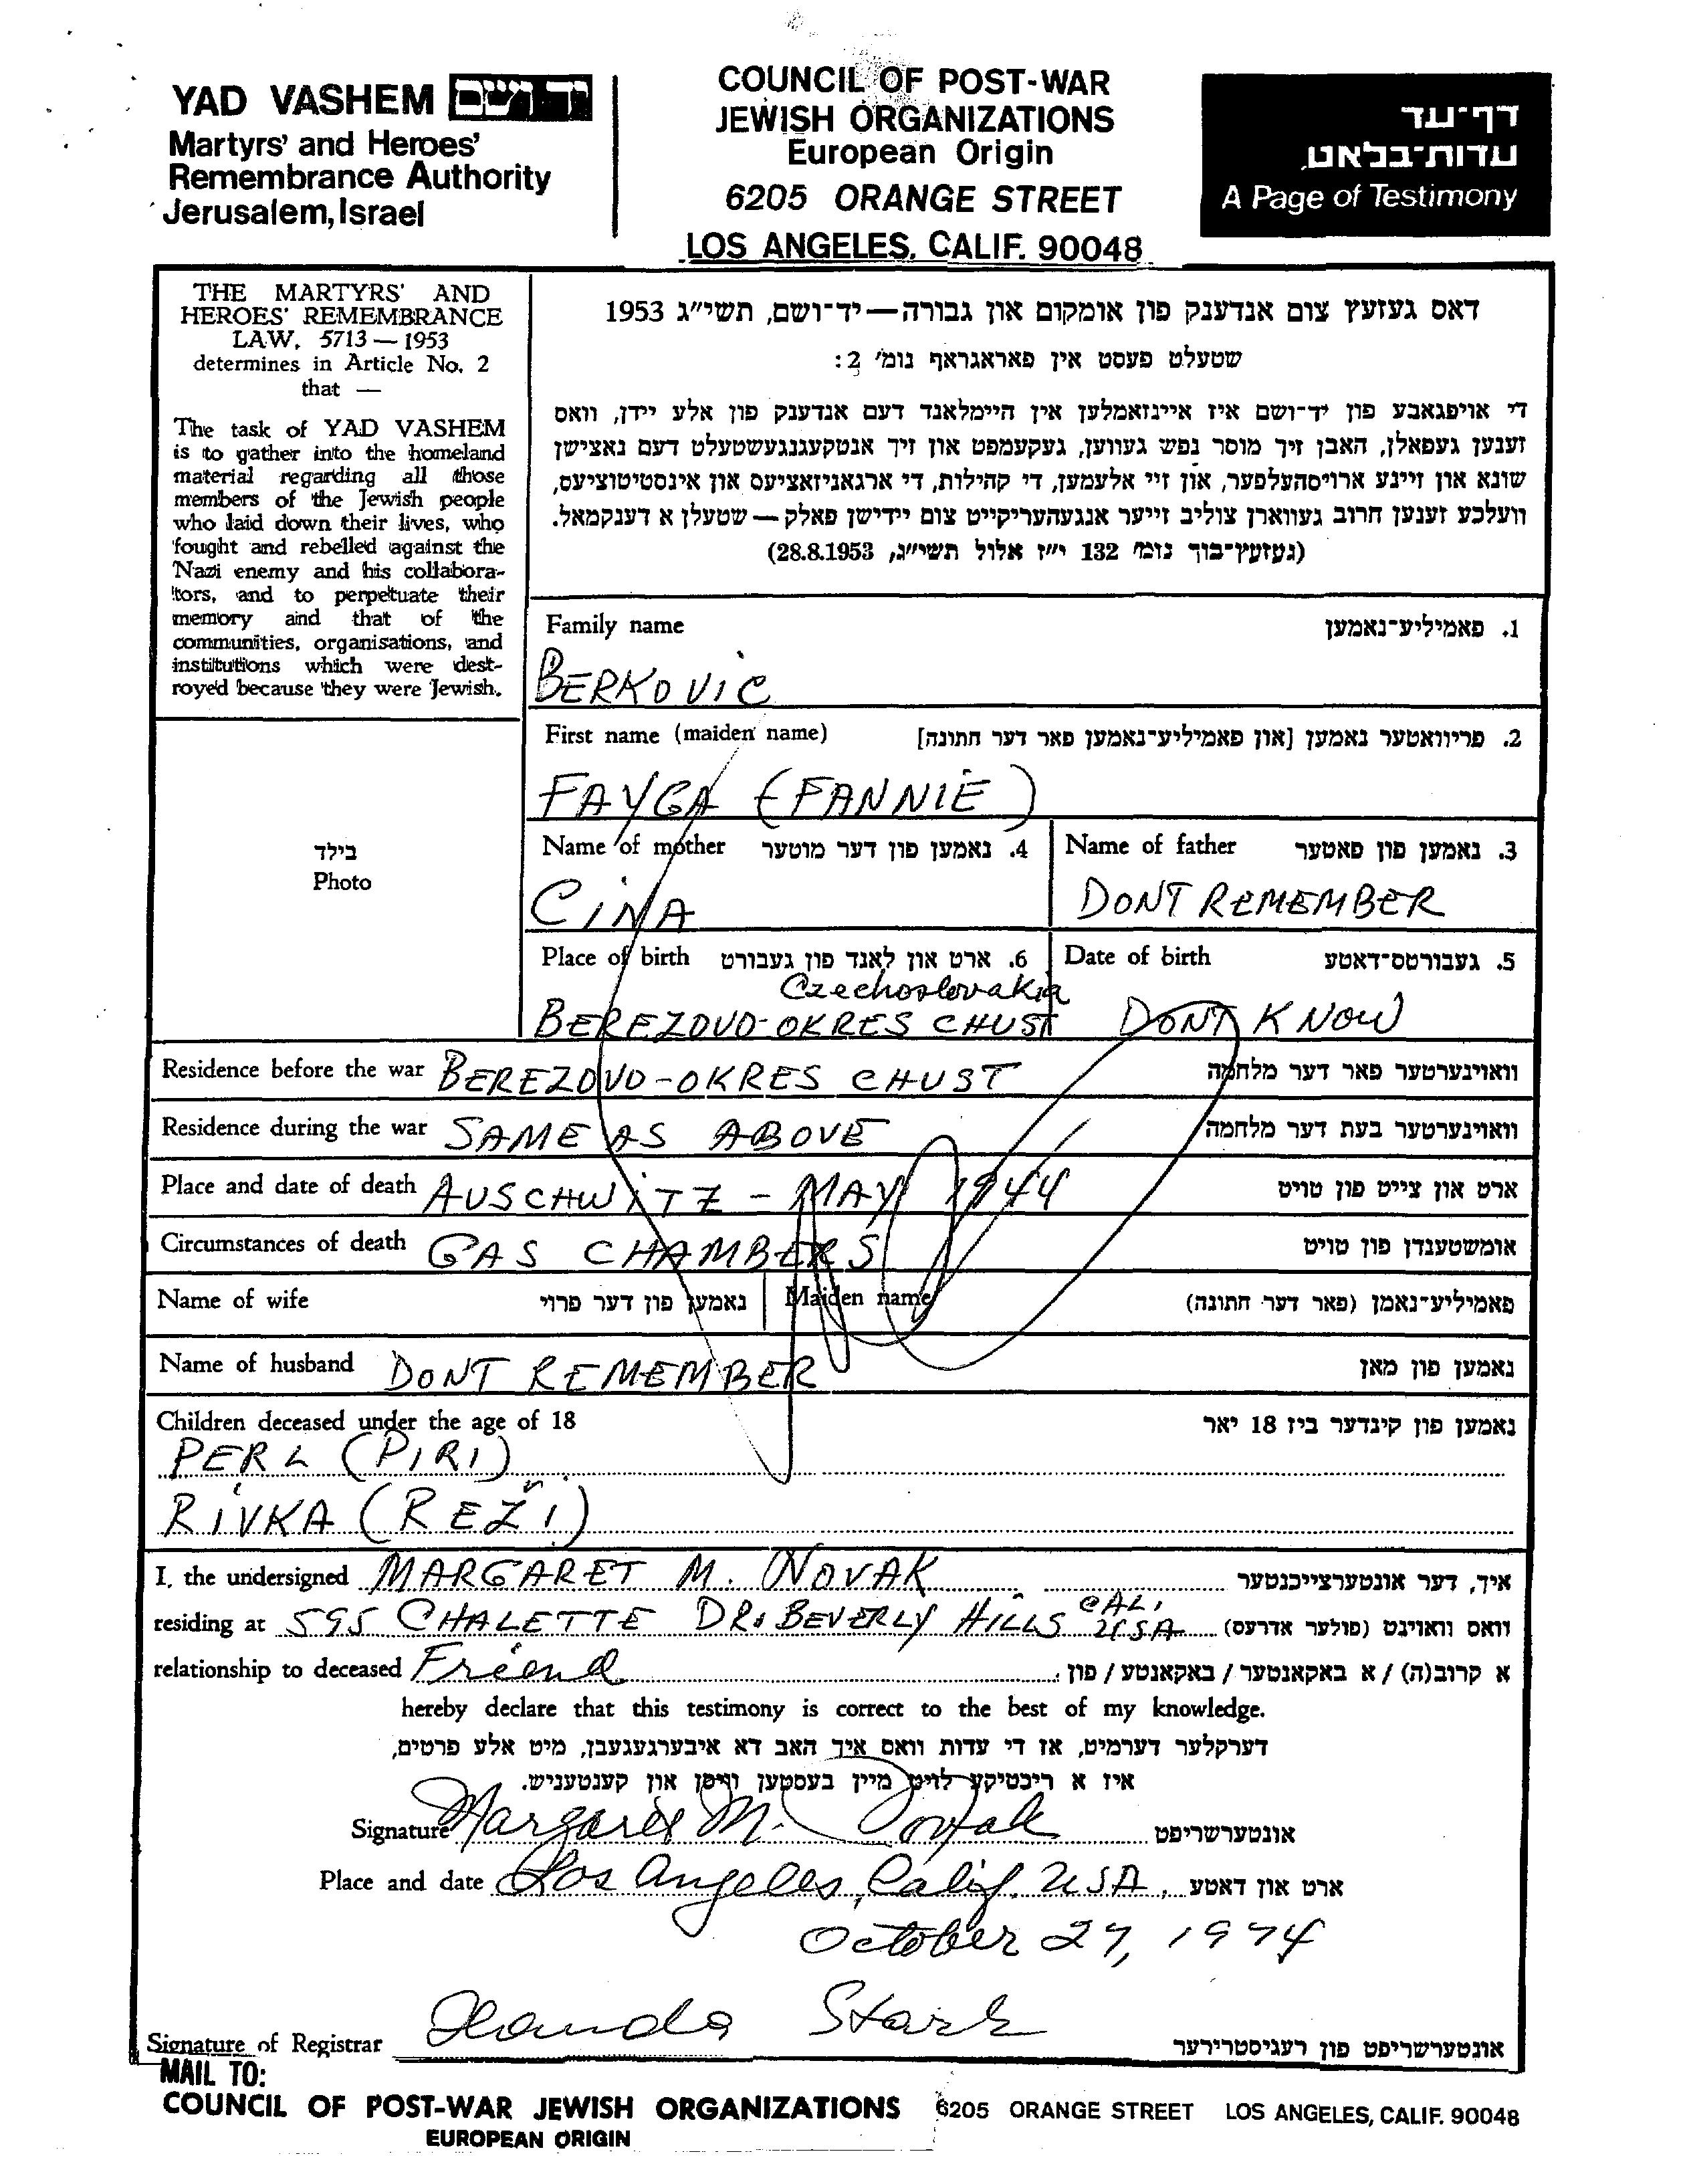 YAD VASHEM יד ושם
Martyrs' and Heroes'
Remembrance Authority
Jerusalem, Israel
COUNCIL OF POST-WAR
JEWISH ORGANIZATIONS
European Origin
6205 ORANGE STREET
LOS ANGELES, CALIF. 90048
דף־עד
עדות־בלאט
A Page of Testimony
THE MARTYRS' AND
HEROES' REMEMBRANCE
LAW, 5713 — 1953
determines in Article No. 2
that —
The task of YAD VASHEM
is to gather into the homeland
material regarding all those
members of the Jewish people
who laid down their lives, who
fought and rebelled against the
Nazi enemy and his collabora-
tors, and to perpetuate their
memory and that of the
communities, organisations, and
institutions which were dest-
royed because they were Jewish.
דאס געזעץ צום אנדענק פון אומקום און גבורה — יד־ושם, תשי״ג 1953
שטעלט פעסט אין פאראגראף נומ׳ 2:
די אויפגאבע פון יד־ושם איז איינזאמלען אין היימלאנד דעם אנדענק פון אלע יידן, וואס
זענען געפאלן, האבן זיך מוסר נפש געווען, געקעמפט און זיך אנטקעגנגעשטעלט דעם נאצישן
שונא און זיינע ארויסהעלפער, און זיי אלעמען, די קהילות, די ארגאניזאציעס און אינסטיטוציעס,
וועלכע זענען חרוב געווארן צוליב זייער אנגעהעריקייט צום יידישן פאלק — שטעלן א דענקמאל.
(געזעץ־בוך נומ׳ 132 י״ז אלול תשי״ג, 28.8.1953)
Family name 1. פאמיליע־נאמען
BERKOVIC
First name (maiden name) 2. פריוואטער נאמען [און פאמיליע־נאמען פאר דער חתונה]
FAYGA (FANNIE)
Name of mother 4. נאמען פון דער מוטער Name of father 3. נאמען פון פאטער
CINA DONT REMEMBER
Place of birth 6. ארט און לאנד פון געבורט Date of birth 5. געבורטס־דאטע
Czechoslovakia
BEREZOVO-OKRES CHUST DONT KNOW
בילד
Photo
Residence before the war BEREZOVO-OKRES CHUST וואוינערטער פאר דער מלחמה
Residence during the war SAME AS ABOVE וואוינערטער בעת דער מלחמה
Place and date of death AUSCHWITZ - MAY 1944 ארט און צייט פון טויט
Circumstances of death GAS CHAMBERS אומשטענדן פון טויט
Name of wife נאמען פון דער פרוי Maiden name פאמיליע־נאמן (פאר דער חתונה)
Name of husband DONT REMEMBER נאמען פון מאן
Children deceased under the age of 18 נאמען פון קינדער ביז 18 יאר
PERL (PIRI)
RIVKA (REŽI)
I, the undersigned MARGARET M. NOVAK איך, דער אונטערצייכנטער
residing at 595 CHALETTE DR. BEVERLY HILLS CALI, USA וואס וואוינט (פולער אדרעס)
relationship to deceased Friend א קרוב(ה) / א באקאנטער / באקאנטע / פון
hereby declare that this testimony is correct to the best of my knowledge.
דערקלער דערמיט, אז די עדות וואס איך האב דא איבערגעגעבן, מיט אלע פרטים,
איז א ריכטיקע לויט מיין בעסטען וויסן און קענטעניש.
Signature Margaret M. Novak אונטערשריפט
Place and date Los Angeles, Calif. USA, ארט און דאטע
October 27, 1974
Signature of Registrar Stark אונטערשריפט פון רעגיסטרירער
MAIL TO:
COUNCIL OF POST-WAR JEWISH ORGANIZATIONS 6205 ORANGE STREET LOS ANGELES, CALIF. 90048
EUROPEAN ORIGIN